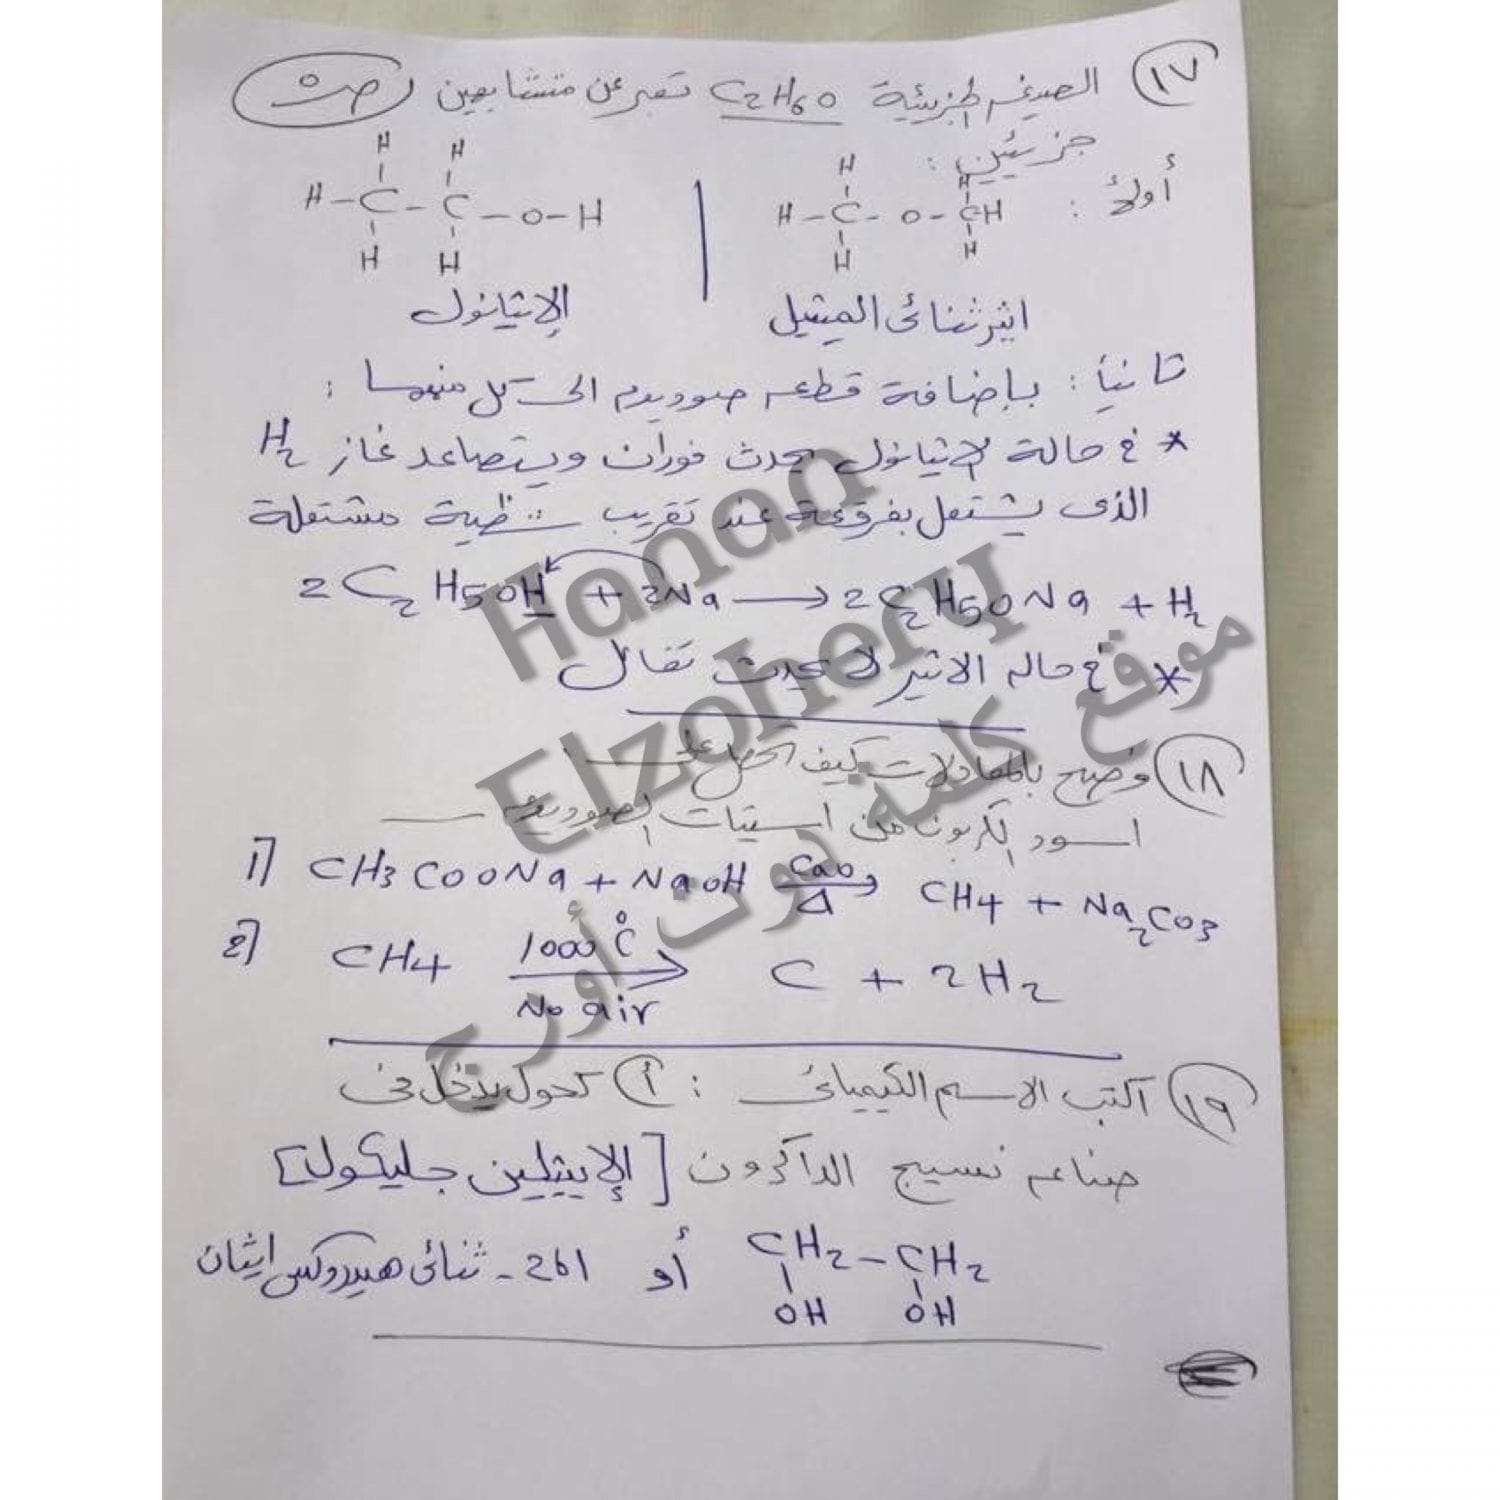 ١٧ الصيغه الجزيئية C2H6O تعبر عن متشابهين ص٥
جزيئين :
أولاً :
H H
H - C - C - O - H
H H
الإيثانول
H H
H - C - O - CH
H H
ايثر ثنائى الميثيل
ثانياً : بإضافة قطعه صوديوم الى كل منهما :
* فى حالة الايثانول يحدث فوران ويتصاعد غاز H2
الذى يشتعل بفرقعة عند تقريب شظية مشتعلة
2C2H5OH + 2Na → 2C2H5ONa + H2
* فى حاله الاثير لا يحدث تفاعل
١٨ وضح بالمعادلات كيف تحصل على
اسود الكربون من اسيتات الصوديوم
1] CH3COONa + NaOH CaO Δ → CH4 + Na2CO3
2] CH4 1000°C No air → C + 2H2
١٩ اكتب الاسم الكيميائى : أ) كحول يدخل فى
صناعه نسيج الداكرون [الإيثلين جليكول]
CH2 - CH2 أو 1،2 - ثنائى هيدروكسى ايثان
OH OH
Hanan
Elzohery
موقع كلمة دوت أورج